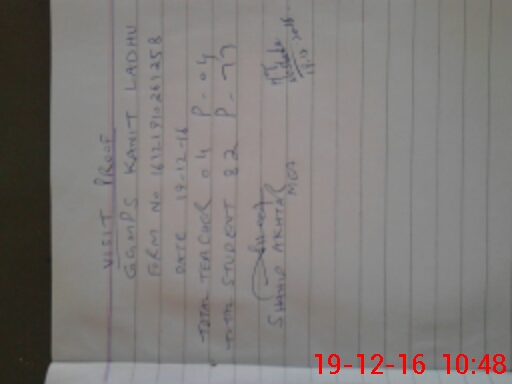 VISIT PROOF
GGMPS KAHIT LADHU
FORM NO 1632191026125B
DATE 19-12-16
TOTAL TEACHER 04 P-04
TOTAL STUDENT 82 P-77
SHAHID AKHTAR
MEA
19-12-16 10:48